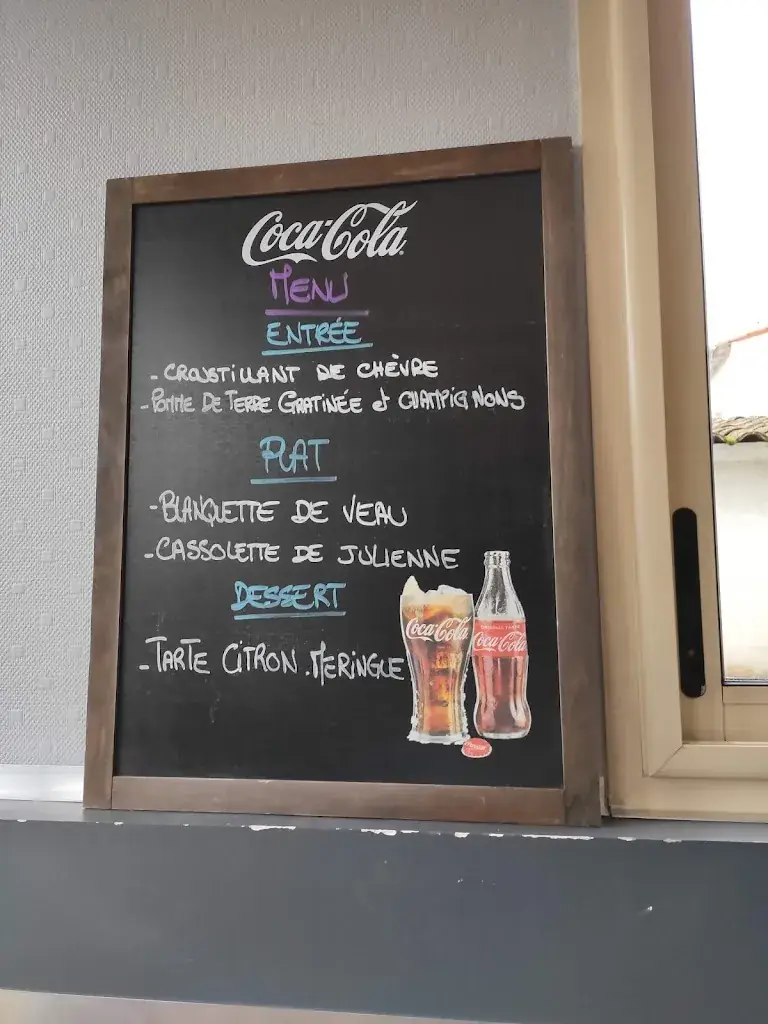 Coca-Cola
MENU
ENTRÉE
- CROUSTILLANT DE CHÈVRE
- POMME DE TERRE GRATINÉE et CHAMPIGNONS
PLAT
- BLANQUETTE DE VEAU
- CASSOLETTE DE JULIENNE
DESSERT
- TARTE CITRON. MERINGUE
Coca-Cola
ORIGINAL TASTE
Coca-Cola